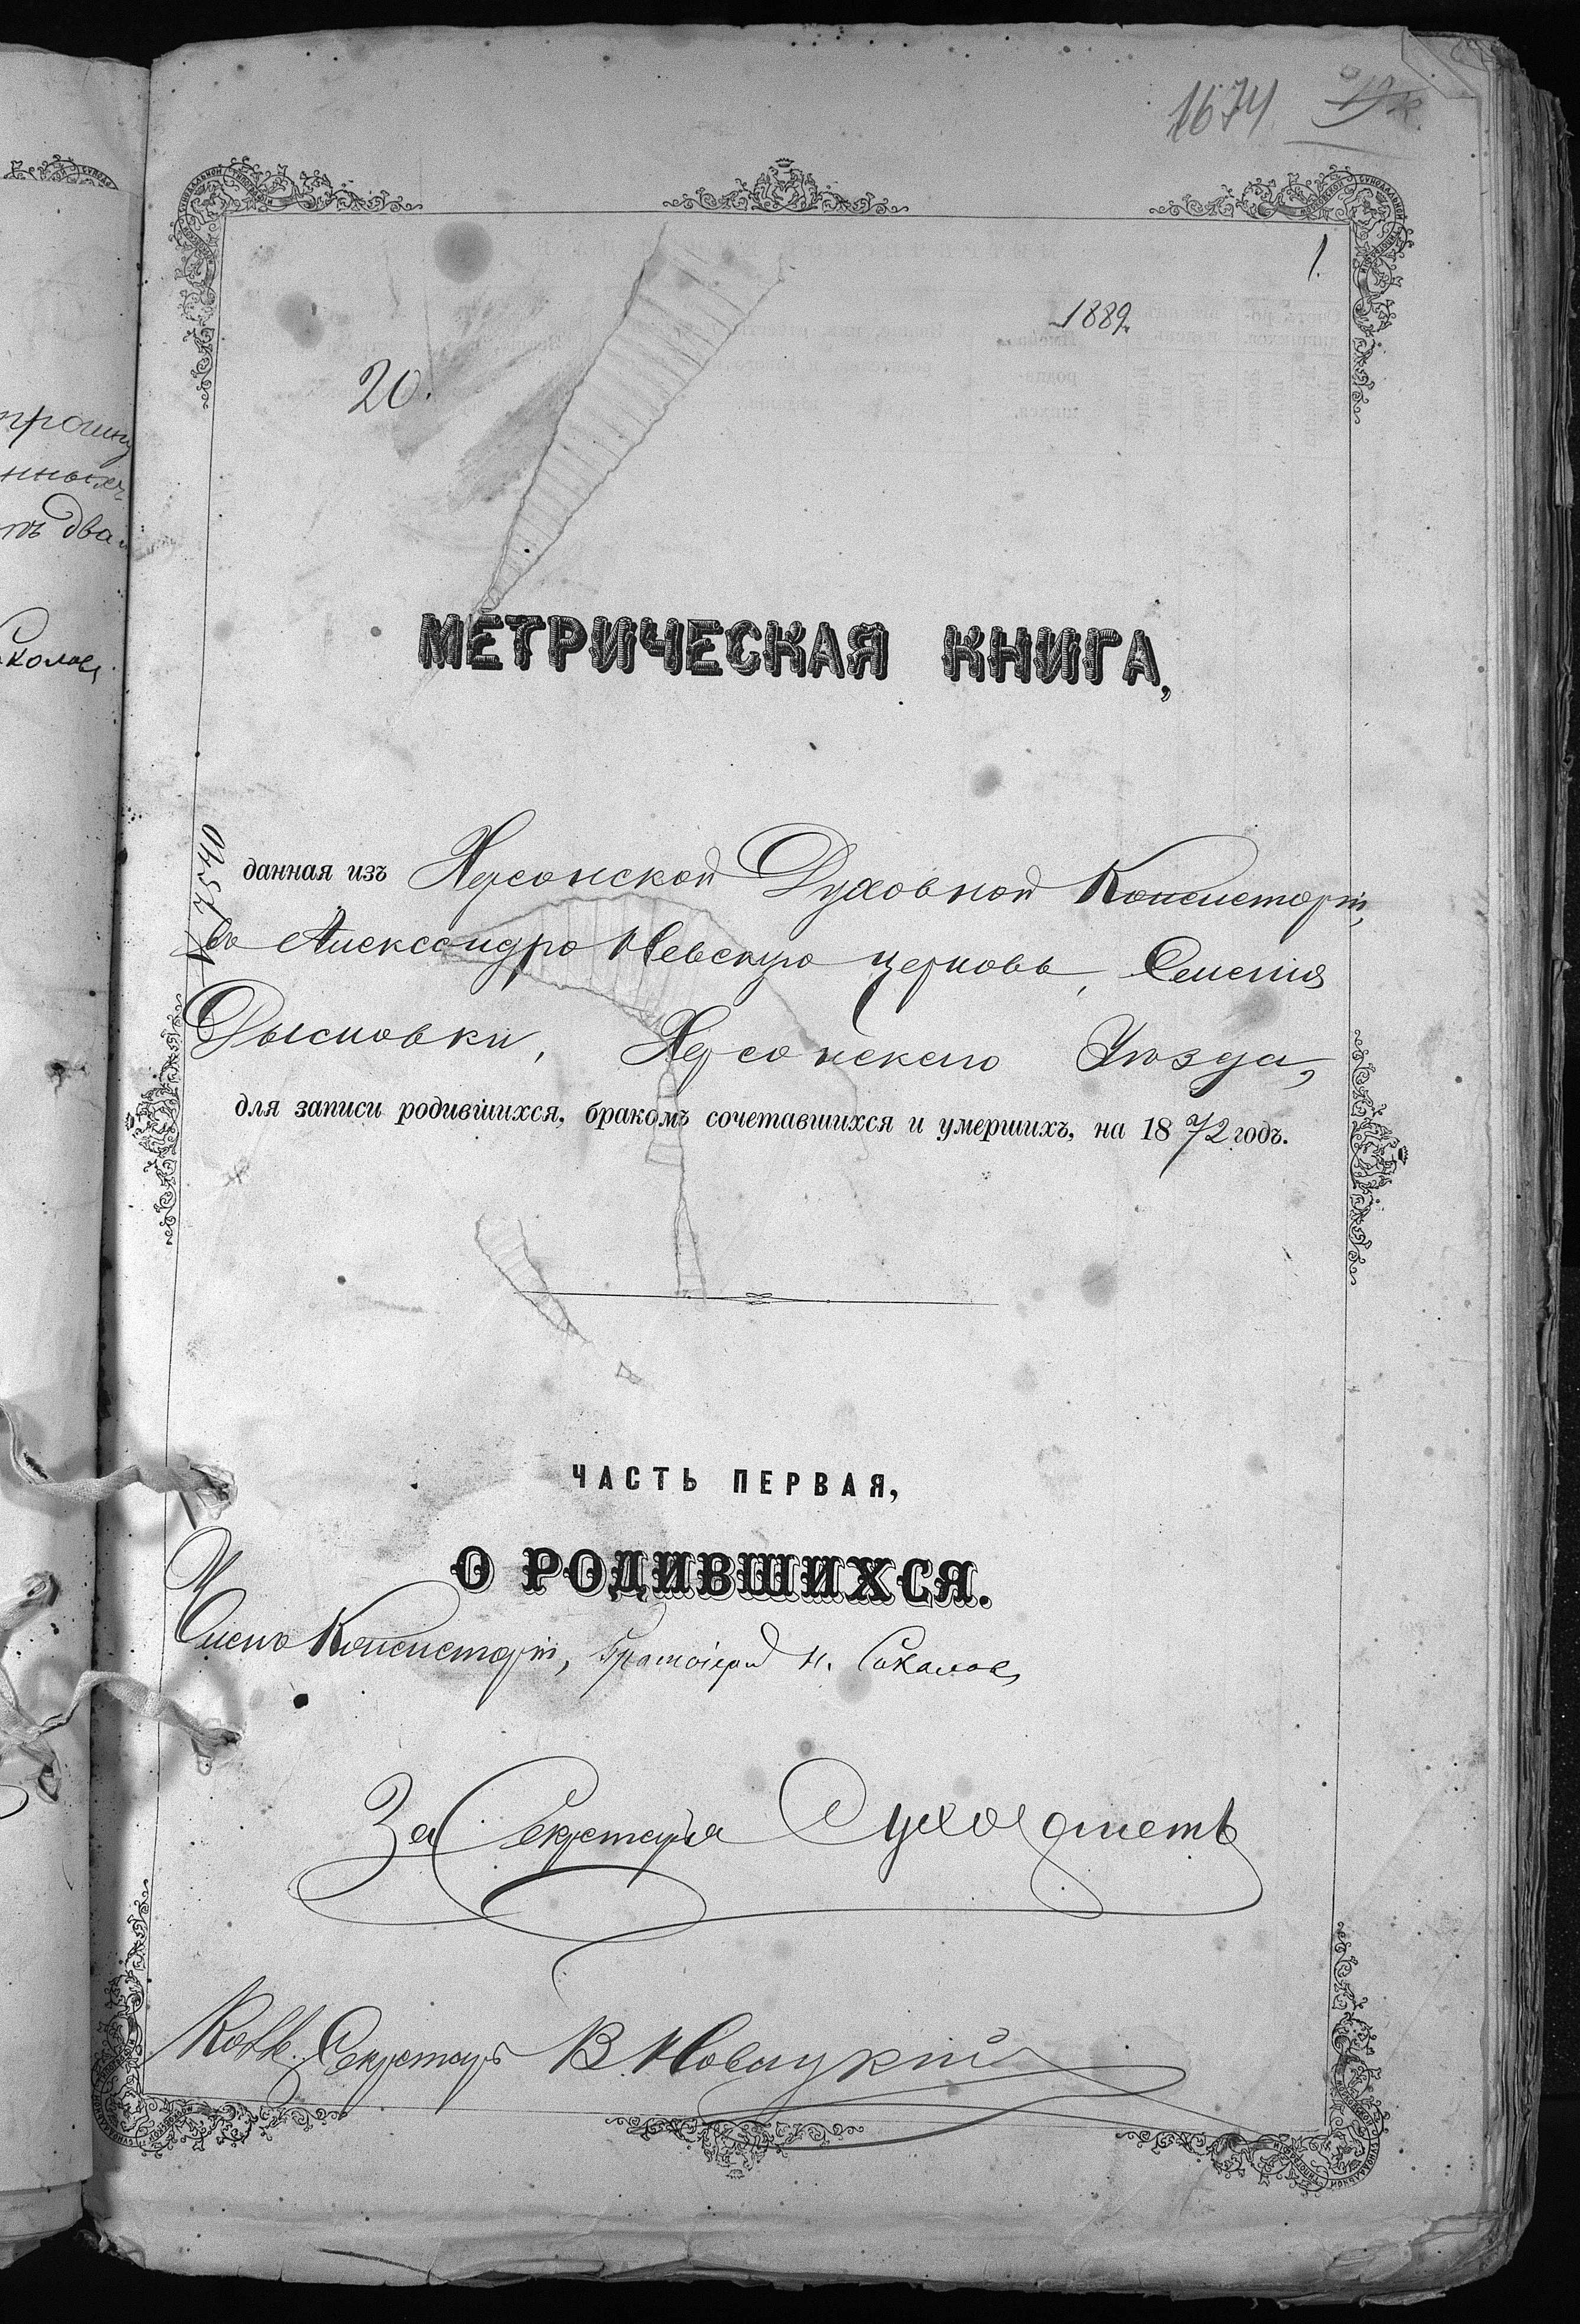 1674
1.
1889.
20.
МЕТРИЧЕСКАЯ КНИГА,
№ 7540
данная изъ Херсонской Духовной Консисторіи,
въ Александро Невскую церковь, Селенія
Дысповки, Херсонскаго Уѣзда,
для записи родившихся, бракомъ сочетавшихся и умершихъ, на 1872 годъ.
ЧАСТЬ ПЕРВАЯ,
О РОДИВШИХСЯ.
Членъ Консисторіи, Протоіерей Н. Соколовъ
За Секретаря Сухомлетъ
Секретарь В. Новицкій